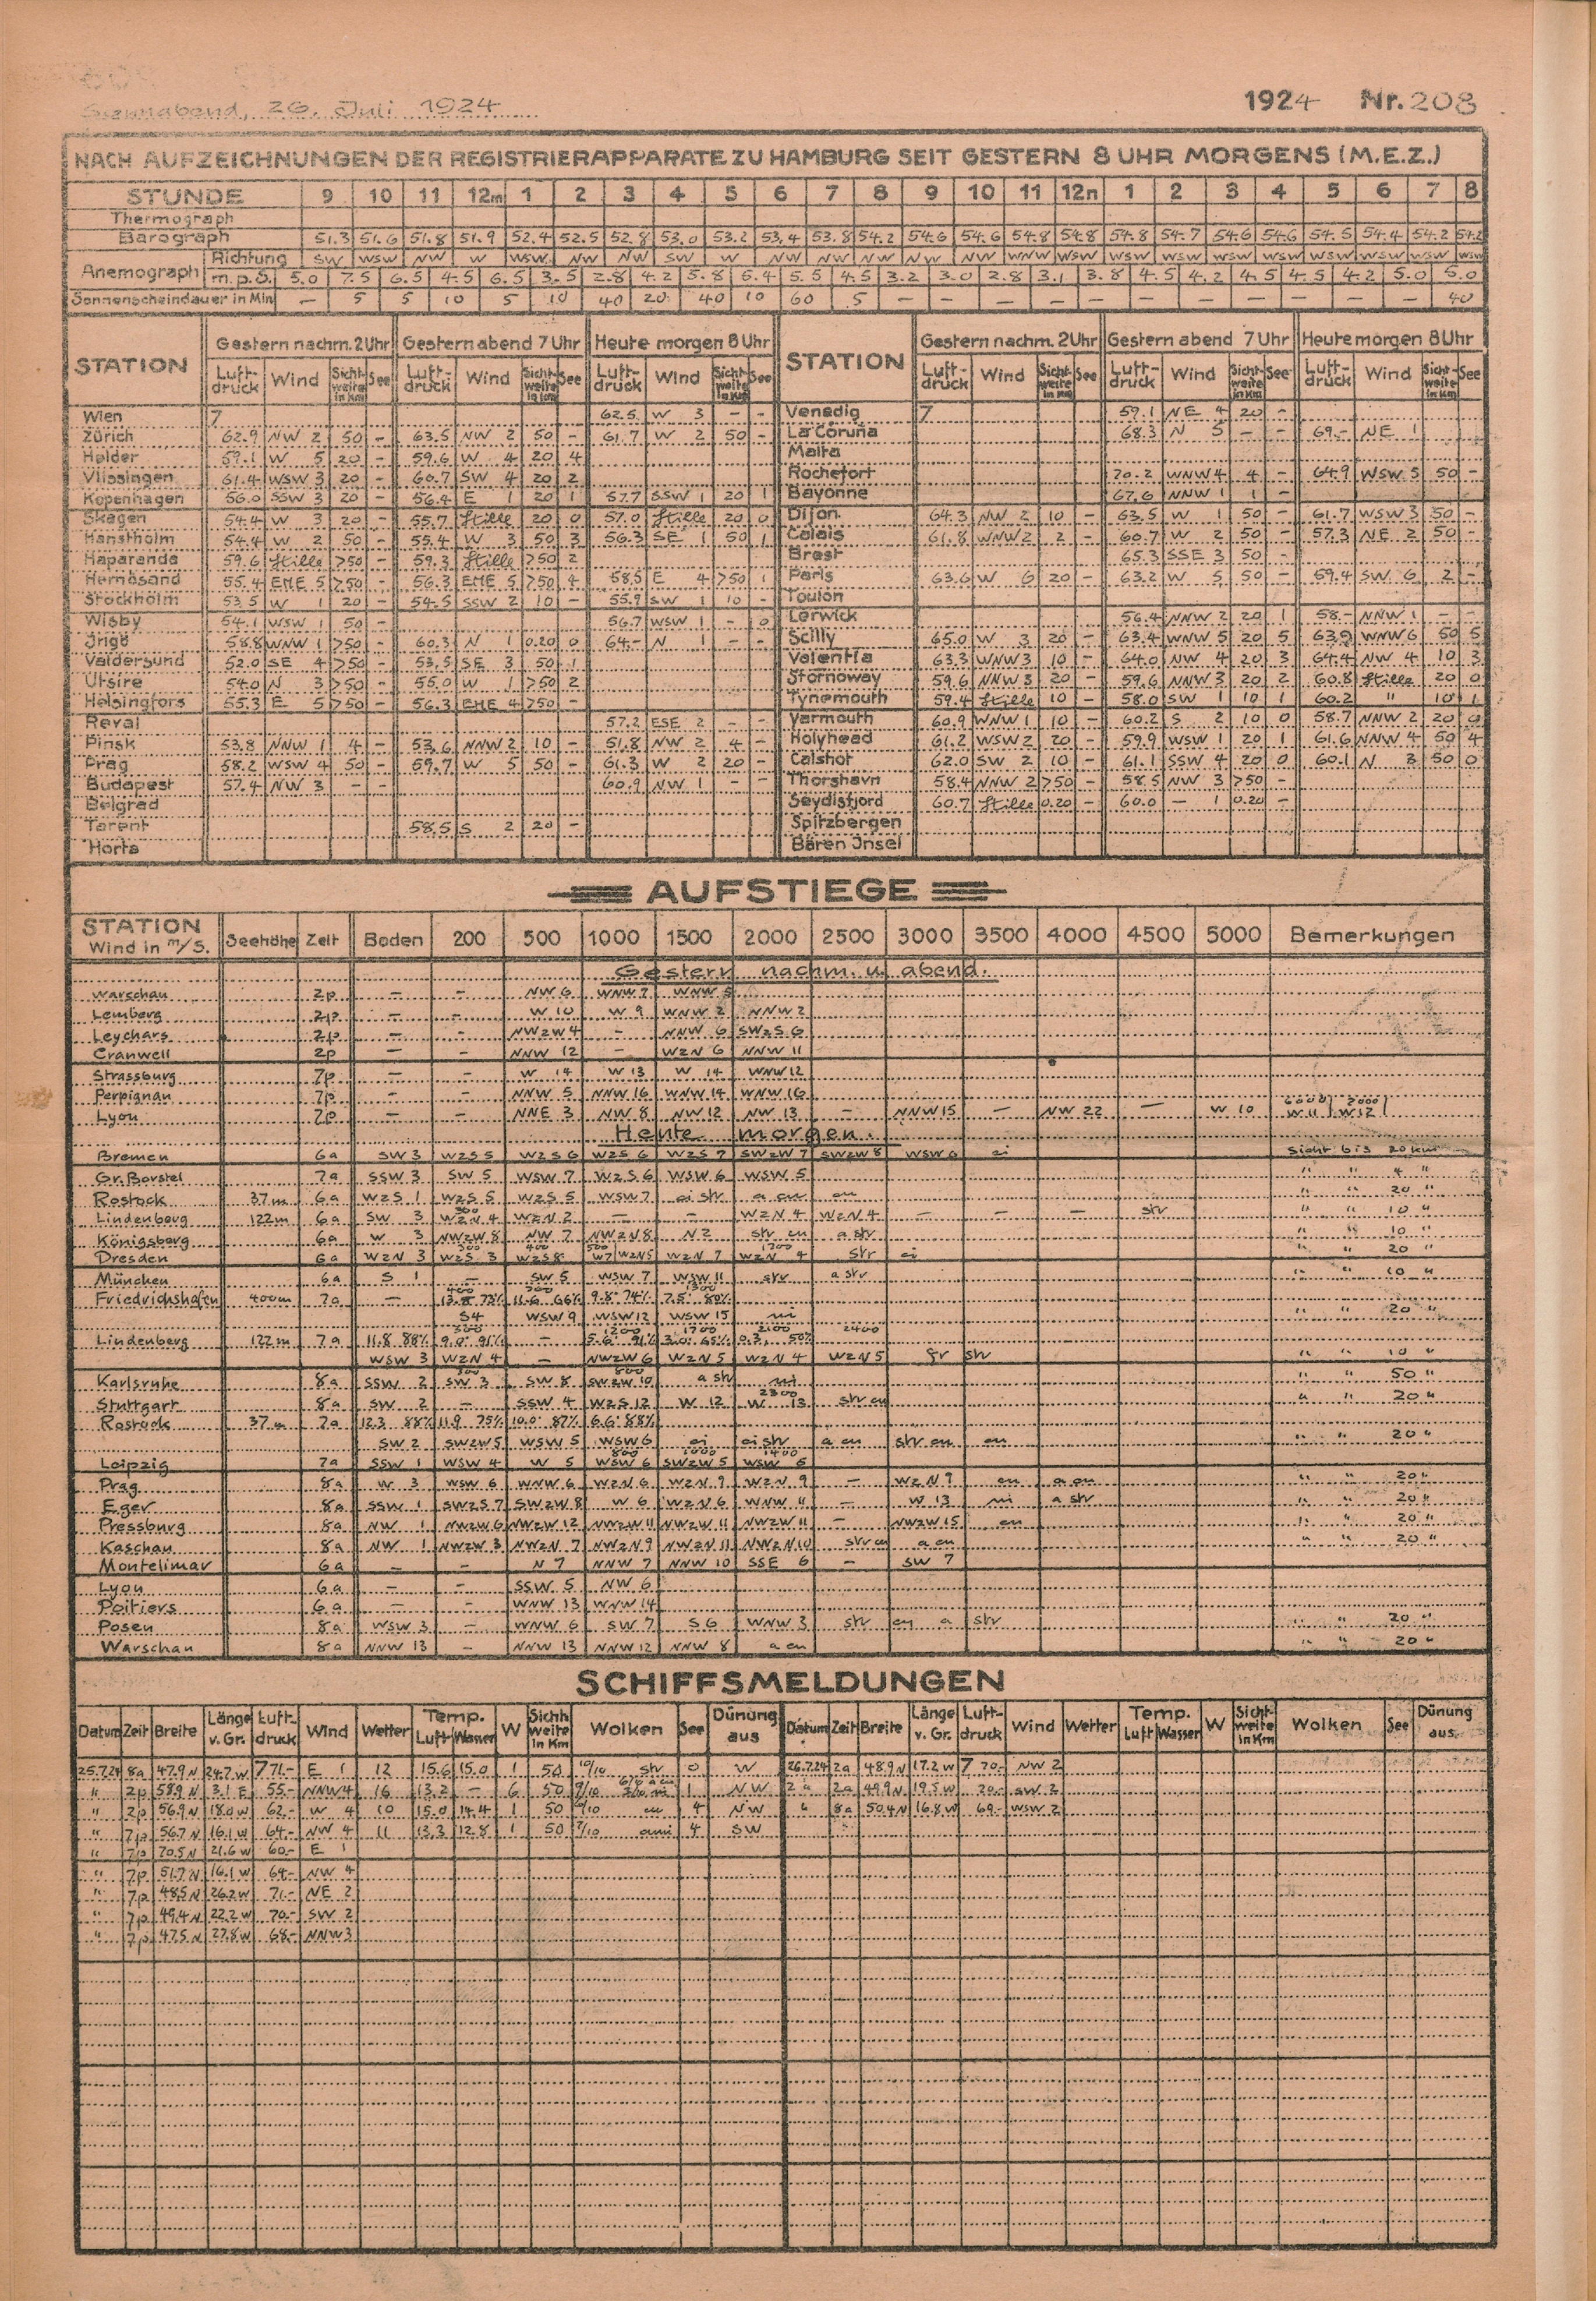 Sonnabend, 26. Juli 1924
1924 Nr. 208
NACH AUFZEICHNUNGEN DER REGISTRIERAPPARATE ZU HAMBURG SEIT GESTERN 8 UHR MORGENS (M.E.Z.)
STUNDE 9 10 11 12m 1 2 3 4 5 6 7 8 9 10 11 12n 1 2 3 4 5 6 7 8
Thermograph
Barograph 51.3 51.6 51.8 51.9 52.4 52.5 52.8 53.0 53.2 53.4 53.8 54.2 54.6 54.6 54.8 54.8 54.8 54.7 54.6 54.6 54.5 54.4 54.2 54.2
Anemograph Richtung SW WSW NW W WSW NW NW SW W NW NW NW NW NW WNW WSW WSW WSW WSW WSW WSW WSW WSW WSW
m.p.S. 5.0 7.5 6.5 4.5 6.5 3.5 2.8 4.2 5.8 5.4 5.5 4.5 3.2 3.0 2.8 3.1 3.8 4.5 4.2 4.5 4.5 4.2 5.0 5.0
Sonnenscheindauer in Min — 5 5 10 5 10 40 20 40 10 60 5 — — — — — — — — — — — 40
STATION Gestern nachm. 2 Uhr Gestern abend 7 Uhr Heute morgen 8 Uhr STATION Gestern nachm. 2 Uhr Gestern abend 7 Uhr Heute morgen 8 Uhr
Luft-druck Wind Sicht-weite in km See Luft-druck Wind Sicht-weite in km See Luft-druck Wind Sicht-weite in km See Luft-druck Wind Sicht-weite in km See Luft-druck Wind Sicht-weite in km See Luft-druck Wind Sicht-weite in km See
Wien 7 62.5 W 3 - - Venedig 7 59.1 NE 4 20 -
Zürich 62.9 NW 2 50 - 63.5 NW 2 50 - 61.7 W 2 50 - La Coruña 68.3 N 5 - - 69.- NE 1
Helder 59.1 W 5 20 - 59.6 W 4 20 4 Malta
Vlissingen 61.4 WSW 3 20 - 60.7 SW 4 20 2 Rochefort 70.2 WNW 4 4 - 64.9 WSW 5 50 -
Kopenhagen 56.0 SSW 3 20 - 56.4 E 1 20 1 57.7 SSW 1 20 1 Bayonne 67.6 NNW 1 1 -
Skagen 54.4 W 3 20 - 55.7 Stille 20 0 57.0 Stille 20 0 Dijon 64.3 NW 2 10 - 63.5 W 1 50 - 61.7 WSW 3 50 -
Hanstholm 54.4 W 2 50 - 55.4 W 3 50 3 56.3 SE 1 50 1 Calais 61.8 WNW 2 2 - 60.7 W 2 50 - 57.3 NE 2 50 -
Haparanda 59.6 Stille >50 - 59.3 Stille >50 2 Brest 65.3 SSE 3 50 -
Hernösand 55.4 ENE 5 >50 - 56.3 ENE 5 >50 4 58.5 E 4 >50 1 Paris 63.6 W 6 20 - 63.2 W 5 50 - 59.4 SW 6 2 -
Stockholm 53.5 W 1 20 - 54.5 SSW 2 10 - 55.9 SW 1 10 - Toulon
Wisby 54.1 WSW 1 50 - 56.7 WSW 1 - 0 Lerwick 56.4 NNW 2 20 1 58.- NNW 1 - -
Jrigö 58.8 WNW 1 >50 - 60.3 N 1 0.20 0 64.- N 1 - - Scilly 65.0 W 3 20 - 63.4 WNW 5 20 5 63.9 WNW 6 50 5
Valdersund 52.0 SE 4 >50 - 53.5 SE 3 50 1 Valentia 63.3 WNW 3 10 - 64.0 NW 4 20 3 64.4 NW 4 10 3
Utsire 54.0 N 3 >50 - 55.0 W 1 >50 2 Stornoway 59.6 NNW 3 20 - 59.6 NNW 3 20 2 60.8 Stille 20 0
Helsingfors 55.3 E 5 >50 - 56.3 ENE 4 >50 - Tynemouth 59.4 Stille 10 - 58.0 SW 1 10 1 60.2 " 10 1
Reval 57.2 ESE 2 - - Yarmouth 60.9 WNW 1 10 - 60.2 S 2 10 0 58.7 NNW 2 20 0
Pinsk 53.8 NNW 1 4 - 53.6 NNW 2 10 - 51.8 NW 2 4 - Holyhead 61.2 WSW 2 20 - 59.9 WSW 1 20 1 61.6 NNW 4 50 4
Prag 58.2 WSW 4 50 - 59.7 W 5 50 - 61.3 W 2 20 - Calshot 62.0 SW 2 10 - 61.1 SSW 4 20 0 60.1 N 3 50 0
Budapest 57.4 NW 3 - - 60.9 NW 1 - - Thorshavn 58.4 NNW 2 >50 - 58.5 NW 3 >50 -
Belgrad Seydisfjord 60.7 Stille 0.20 - 60.0 — 1 0.20 -
Tarent 58.5 S 2 20 - Spitzbergen
Horta Bären Jnsel
AUFSTIEGE
STATION Wind in m/S. Seehöhe Zeit Boden 200 500 1000 1500 2000 2500 3000 3500 4000 4500 5000 Bemerkungen
Gestern nachm. u. abend.
Warschau 2p — - NW 6 WNW 7 WNW 5
Lemberg 2p — - W 10 W 9 WNW 2 NNW 2
Leychars 2p — - NWzW 4 - NNW 6 SWzS 6
Cranwell 2p — - NNW 12 - WzN 6 NNW 11
Strassburg 7p — - W 14 W 13 W 14 WNW 12
Perpignan 7p — - NNW 5 NNW 16 WNW 14 WNW 16
Lyon 7p — - NNE 3 NW 8 NW 12 NW 13 - NNW 15 — NW 22 — W 10 W 11 W 12
Heute morgen.
Bremen 6a SW 3 WzS 5 WzS 6 WzS 6 WzS 7 SWzW 7 SWzW 8 WSW 6 ci Sicht bis 20 km
Gr. Borstel 7a SSW 3 SW 5 WSW 7 WzS 6 WSW 6 WSW 5 " " 4 "
Rostock 37m 6a WzS 1 WzS 5 WzS 5 WSW 7 ci str a cu cu " " 20 "
Lindenberg 122m 6a SW 3 300 WzN 4 WzN 2 — - WzN 4 WzN 4 — — — str " " 10 "
Königsberg 6a W 3 NWzW 8 NW 7 NWzN 8 N 2 str cu a str " " 10 "
Dresden 6a WzN 3 300 WzS 3 400 WzS 8 500 W 7 WzN 5 WzN 7 1700 WzN 4 str ci " " 20 "
München 6a S 1 — SW 5 WSW 7 WSW 11 str a str " " 10 "
Friedrichshafen 400m 7a — 400 13.8° 73% 500 11.6 66% 9.8° 74% 1300 7.5° 80%
S 4 WSW 9 WSW 12 WSW 15 ni " " 20 "
Lindenberg 122m 7a 11.8 88% 300 9.0° 91% — 1200 5.6° 91% 1700 3.0° 65% 2100 0.3 50% 2400
WSW 3 WzN 4 — NWzW 6 WzN 5 WzN 4 WzN 5 fr str " " 10 "
Karlsruhe 8a SSW 2 300 SW 3 SW 8 800 SWzW 10 a str ni " " 50 "
Stuttgart 8a SW 2 - SSW 4 WzS 12 W 12 2300 W 13 str cu " " 20 "
Rostock 37m 7a 12.3 88% 11.9 75% 10.0° 87% 6.6° 88%
SW 2 SWzW 5 WSW 5 WSW 6 ci ci str a cu str cu cu " " 20 "
Leipzig 7a SSW 1 WSW 4 W 5 800 WSW 6 1000 SWzW 5 1400 WSW 6
Prag 8a W 3 WSW 6 WNW 6 WzN 6 WzN 9 WzN 9 — WzN 9 cu a cu " " 20 "
Eger 8a SSW 1 SWzS 7 SWzW 8 W 6 WzN 6 WNW 11 — W 13 ni a str " " 20 "
Pressburg 8a NW 1 NWzW 6 NWzW 12 NWzW 11 NWzW 11 NWzW 11 - NWzW 15 cu " " 20 "
Kaschau 8a NW 1 NWzW 3 NWzN 7 NWzN 9 NWzN 11 NWzN 10 str cu a cu " " 20 "
Montelimar 6a — - N 7 NNW 7 NNW 10 SSE 6 - SW 7
Lyon 6a — - SSW 5 NW 6
Poitiers 6a — - WNW 13 WNW 14
Posen 8a WSW 3 - WNW 6 SW 7 S 6 WNW 3 str cu a str " " 20 "
Warschau 8a NNW 13 - NNW 13 NNW 12 NNW 8 a cu " " 20 "
SCHIFFSMELDUNGEN
Datum Zeit Breite Länge v. Gr. Luft-druck Wind Wetter Temp. Luft Wasser W Sicht-weite in Km Wolken See Dünung aus Datum Zeit Breite Länge v. Gr. Luft-druck Wind Wetter Temp. Luft Wasser W Sicht-weite in Km Wolken See Dünung aus
25.7.24 8a 47.9 N 24.7 W 771.- E 1 12 15.6 15.0 1 50 10/10 str 0 W 26.7.24 2a 48.9 N 17.2 W 770.- NW 2
" 2p 58.9 N 3.1 E 55.- NNW 4 16 13.2 — 6 50 1 NW 2a 49.9 N 19.5 W 70.- SW 2
" 2p 56.9 N 18.0 W 62.- W 4 10 15.0 14.4 1 50 cu 4 NW " 8a 50.4 N 16.8 W 69.- WSW 2
" 7p 56.7 N 16.1 W 64.- NW 4 11 13.3 12.8 1 50 7/10 4 SW
" 7p 70.5 N 21.6 W 60.- E 1
" 7p 51.7 N 16.1 W 64.- NW 4
" 7p 48.5 N 26.2 W 71.- NE 2
" 7p 49.4 N 22.2 W 70.- SW 2
" 7p 47.5 N 27.8 W 68.- NNW 3